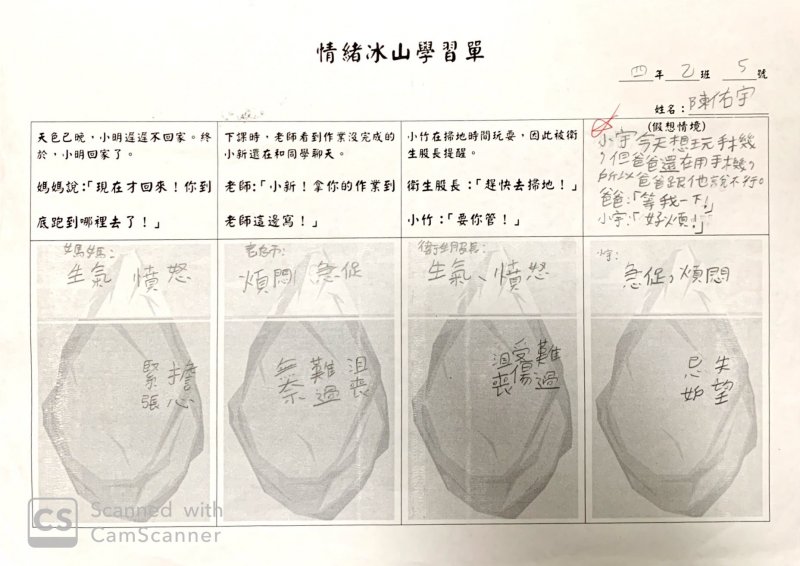 情緒冰山學習單
四年乙班 5號
姓名：陳佑宇
天色已晚，小明遲遲不回家。終
於，小明回家了。
媽媽說：「現在才回來！你到
底跑到哪裡去了！」
下課時，老師看到作業沒完成的
小新還在和同學聊天。
老師：「小新！拿你的作業到
老師這邊寫！」
小竹在掃地時間玩耍，因此被衛
生股長提醒。
衛生股長：「趕快去掃地！」
小竹：「要你管！」
(假想情境)
小宇今天想玩手機
，但爸爸還在用手機，
所以爸爸跟他說不行。
爸爸：「等我一下！」
小宇：「好煩！」
媽媽：
生氣 憤怒
擔心
緊張
老師：
煩悶 急促
沮喪
難過
無奈
衛生股長：
生氣、憤怒
難過
受傷
沮喪
急促，煩悶
失望
忌妒
CS Scanned with
CamScanner